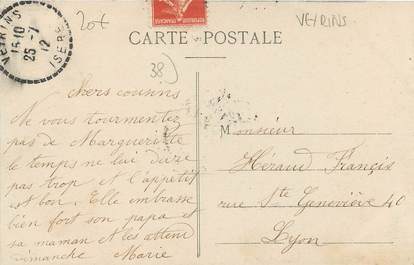 VEYRINS
15-10
25-7
12
ISERE
20F
VEYRINS
CARTE POSTALE
38)
chers cousins
Ne vous tourmentez
pas de Marguerite
le temps ne lui dure
pas trop et l'appétit
est bon. Elle embrasse
bien fort son papa et
sa maman et les attend
Dimanche Marie
Monsieur
Héraud Françis
rue Ste Geneviève 40
Lyon